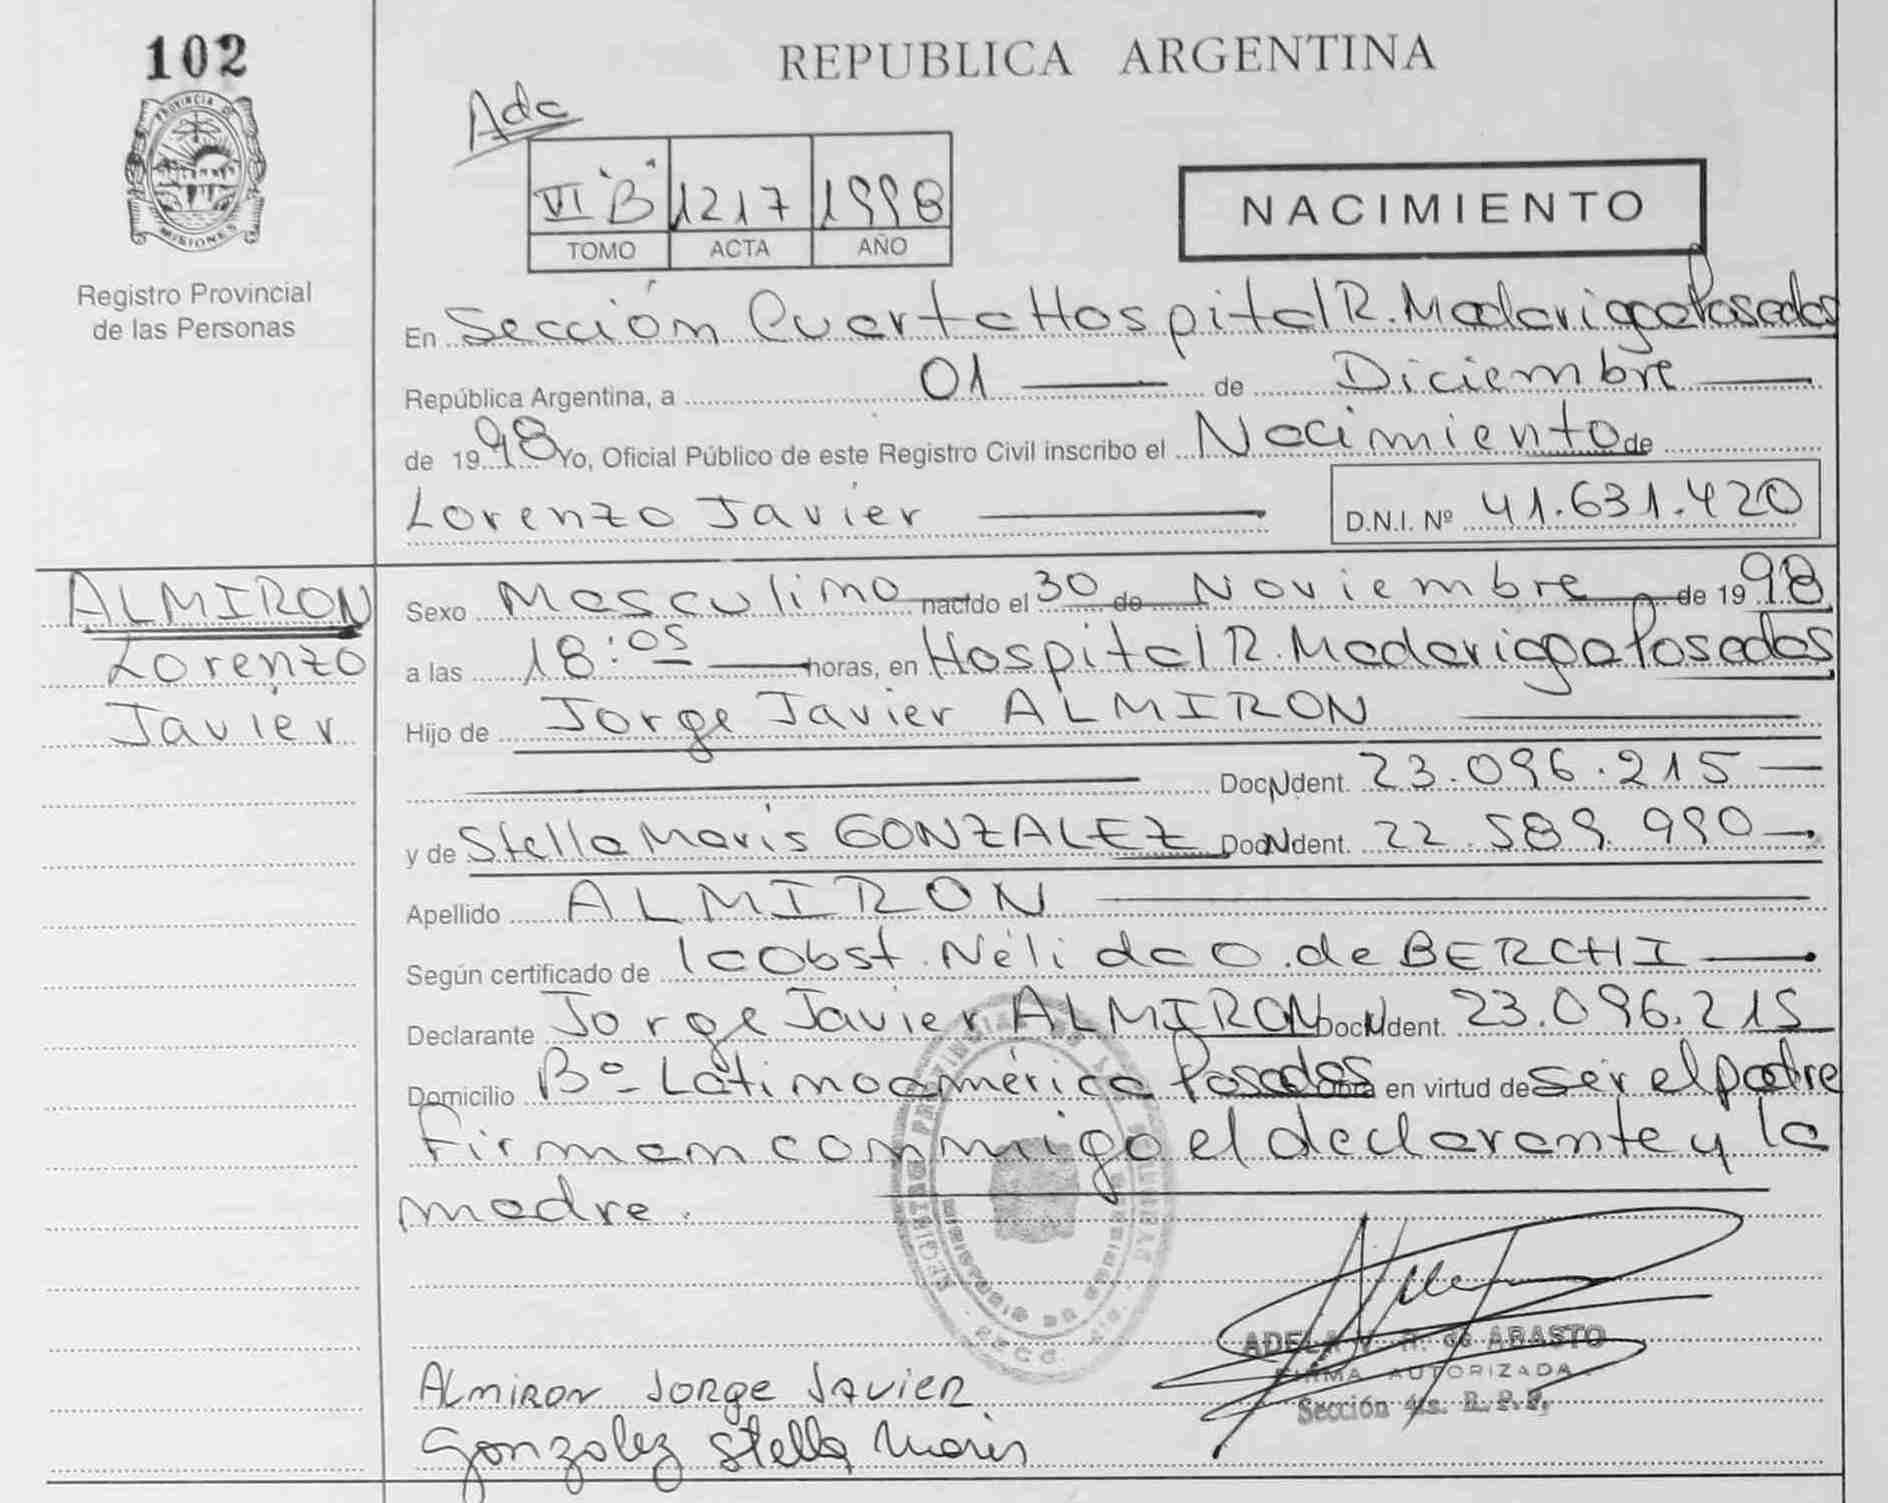 102
REPUBLICA ARGENTINA
PROVINCIA DE
MISIONES
Registro Provincial
de las Personas
Ada
VI "B" 1217 1998
TOMO ACTA AÑO
NACIMIENTO
En Sección Cuarta Hospital R. Madariaga Posadas
República Argentina, a 01 de Diciembre
de 1998 Yo, Oficial Público de este Registro Civil inscribo el Nacimiento de
Lorenzo Javier D.N.I. Nº 41.631.420
ALMIRON
Lorenzo
Javier
Sexo Masculino nacido el 30 de Noviembre de 1998
a las 18:05 horas, en Hospital R. Madariaga Posadas
Hijo de Jorge Javier ALMIRON
Doc. N Ident. 23.096.215
y de Stella Maris GONZALEZ Doc N Ident. 22.589.990
Apellido ALMIRON
Según certificado de la Obst. Nélida O. de BERCHI
Declarante Jorge Javier ALMIRON Doc N Ident. 23.096.215
Domicilio Bº Latinoamérica Posadas Obra en virtud de ser el padre
Firman conmigo el declarante y la
madre.
ADELA V. R. de ARASTO
FIRMA AUTORIZADA
Sección 4ta. R. P. P.
Almiron Jorge Javier
Gonzalez Stella Maris